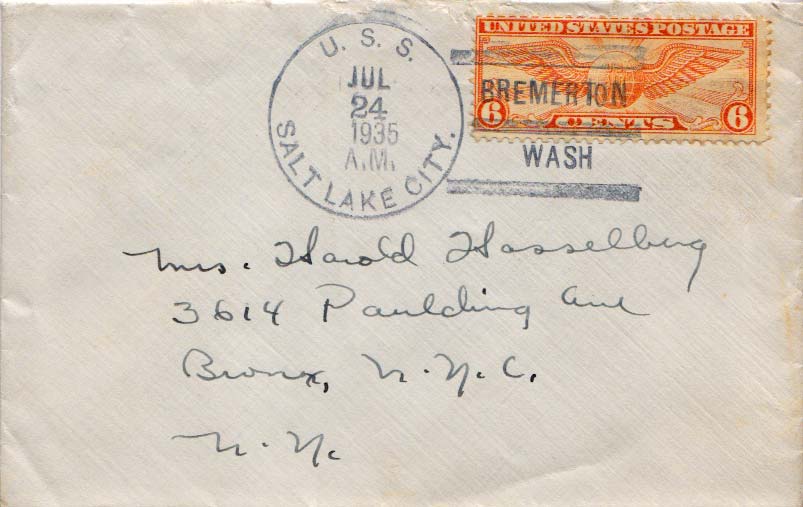 U. S. S.
JUL
24
1935
A.M.
SALT LAKE CITY.
UNITED STATES POSTAGE
BREMERTON
6 CENTS 6
WASH
Mrs. Harold Hasselberg
3614 Paulding Ave
Bronx, N.Y.C.
N.Y.